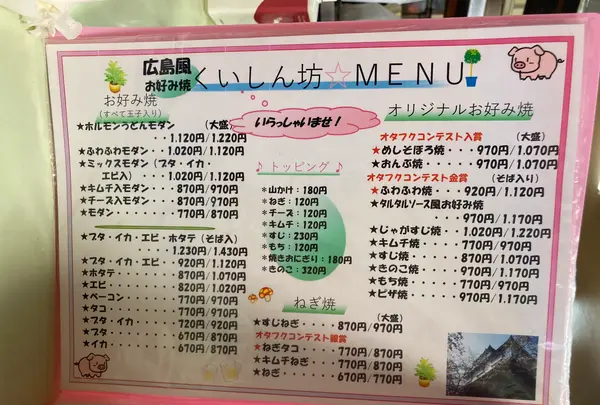 広島風
お好み焼
くいしん坊☆MENU
お好み焼
(すべて玉子入り)
★ホルモンうどんモダン (大盛)
・・・・・1.120円/1.220円
★ふわふわモダン・・1.020円/1.120円
★ミックスモダン(ブタ・イカ・
エビ入)・・・・1.020円/1.120円
★キムチ入モダン・・・870円/970円
★チーズ入モダン・・・870円/970円
★モダン・・・・・・・770円/870円
★ブタ・イカ・エビ・ホタテ(そば入)
・・・・・1.230円/1.430円
★ブタ・イカ・エビ・・920円/1.120円
★ホタテ・・・・・・870円/1.070円
★エビ・・・・・・・820円/1.020円
★ベーコン・・・・・・770円/970円
★タコ・・・・・・・・770円/970円
★ブタ・イカ・・・・・720円/920円
★ブタ・・・・・・・・670円/870円
★イカ・・・・・・・・670円/870円
いらっしゃいませ!
♪トッピング♪
*山かけ:180円
*ねぎ:120円
*チーズ:120円
*キムチ:120円
*すじ:230円
*もち:120円
*焼きおにぎり:180円
*きのこ:320円
ねぎ焼
(大盛)
★すじねぎ・・・・870円/970円
オタフクコンテスト銀賞
★ねぎタコ・・・・770円/870円
★キムチねぎ・・・770円/870円
★ねぎ・・・・・・670円/770円
オリジナルお好み焼
オタフクコンテスト入賞 (大盛)
★めしそぼろ焼・・・970円/1.070円
★おんぶ焼・・・・・970円/1.070円
オタフクコンテスト金賞 (そば入り)
★ふわふわ焼・・・・920円/1.120円
★タルタルソース風お好み焼
970円/1.170円
★じゃがすじ焼・・・1.020円/1.220円
★キムチ焼・・・・・770円/970円
★すじ焼・・・・・・870円/1.070円
★きのこ焼・・・・・970円/1.170円
★もち焼・・・・・・770円/970円
★ピザ焼・・・・・・970円/1.170円